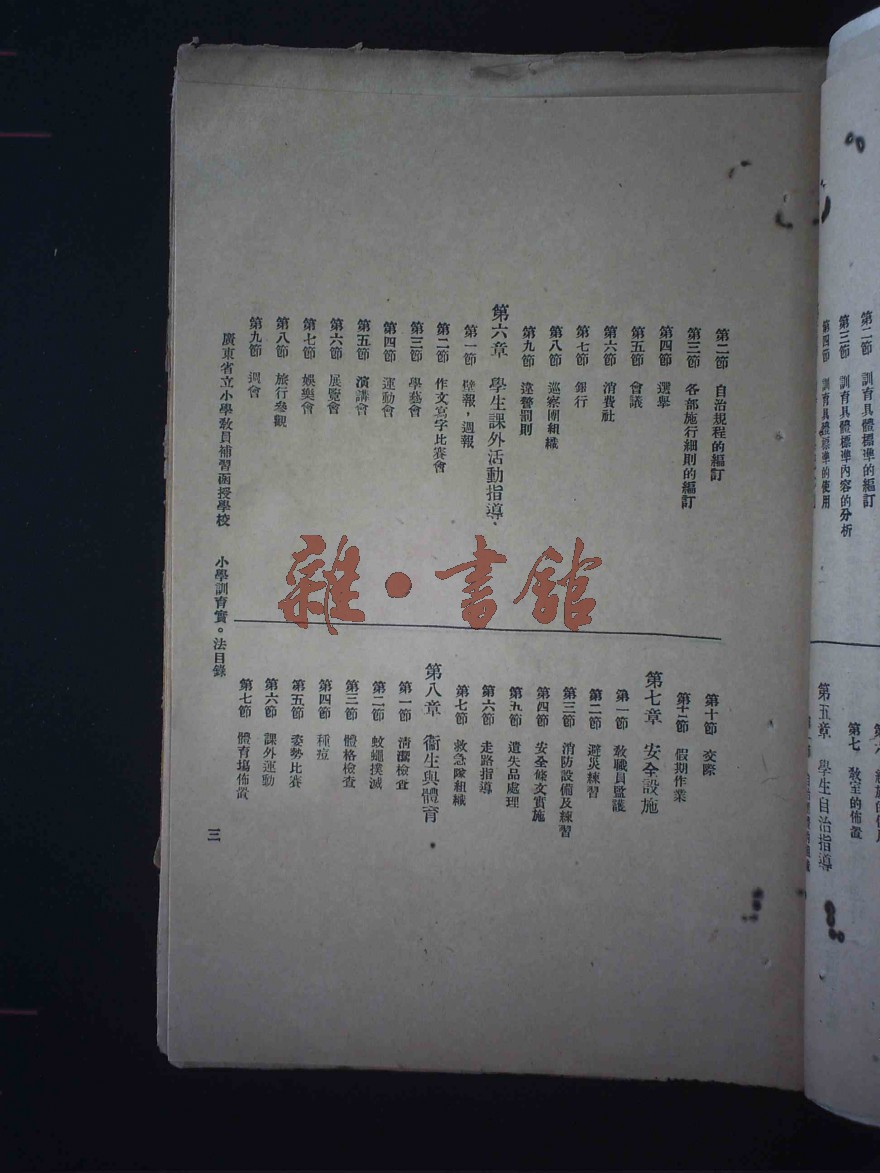 第二節 訓育具體標準的編訂
第三節 訓育具體標準內容的分析
第四節 訓育具體標準的使用
第七 教室的佈置
第五章 學生自治指導
第二節 自治規程的編訂
第三節 各部施行細則的編訂
第四節 選舉
第五節 會議
第六節 消費社
第七節 銀行
第八節 巡察團組織
第九節 違警罰則
第六章 學生課外活動指導
第一節 壁報，週報
第二節 作文寫字比賽會
第三節 學藝會
第四節 運動會
第五節 演講會
第六節 展覽會
第七節 娛樂會
第八節 旅行參觀
第九節 週會
第十節 交際
第十一節 假期作業
第七章 安全設施
第一節 教職員監護
第二節 避災練習
第三節 消防設備及練習
第四節 安全條文實施
第五節 遺失品處理
第六節 走路指導
第七節 救急隊組織
第八章 衞生與體育
第一節 清潔檢查
第二節 蚊蠅撲滅
第三節 體格檢查
第四節 種痘
第五節 姿勢比賽
第六節 課外運動
第七節 體育場佈置
廣東省立小學教員補習函授學校 小學訓育實。法目錄
三
雜•書館